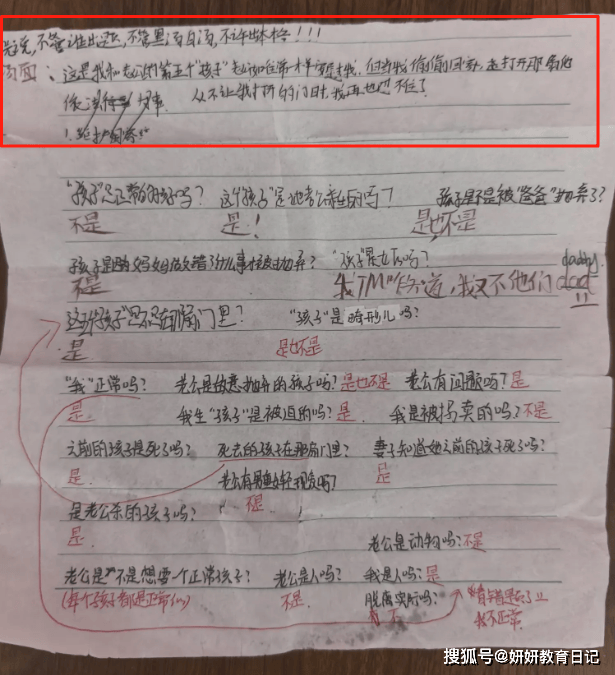 不管谁出题,不管黑汤白汤,不许出格!!!
汤面: 这是我和老公的第五个"孩子" 老公如往常一样 但当我偷偷回家,去打开那扇他
从不让我打开的门时,我再也忍不住了
"孩子"是正常的孩子吗? 这个"孩子"是她老公亲生的吗? 孩子是不是被"爸爸"抛弃了?
不是 是! 是也不是
孩子是因妈妈做错了什么事才被抛弃? "孩子"是女儿吗?
不是 我TM咋知道,我又不他们daddy dad
这个"孩子"是不是在那扇门里? "孩子"是畸形儿吗?
是 是也不是
"我"正常吗? 老公是故意抛弃的孩子吗?是也不是 老公有问题吗?是
是 我生"孩子"是被迫的吗?是 我是被拐卖的吗?不是
之前的孩子是死了吗? 死去的孩子在那扇门里? 妻子知道她之前的孩子死了吗?
是. 是
是老公杀的孩子吗? 不是
是.
老公是动物吗?不是
老公是不是想要一个正常孩子? 老公是人吗? 我是人吗?是
(每个孩子都是正常 不是. 脱离实际吗?
我不正常
搜狐号@妍妍教育日记